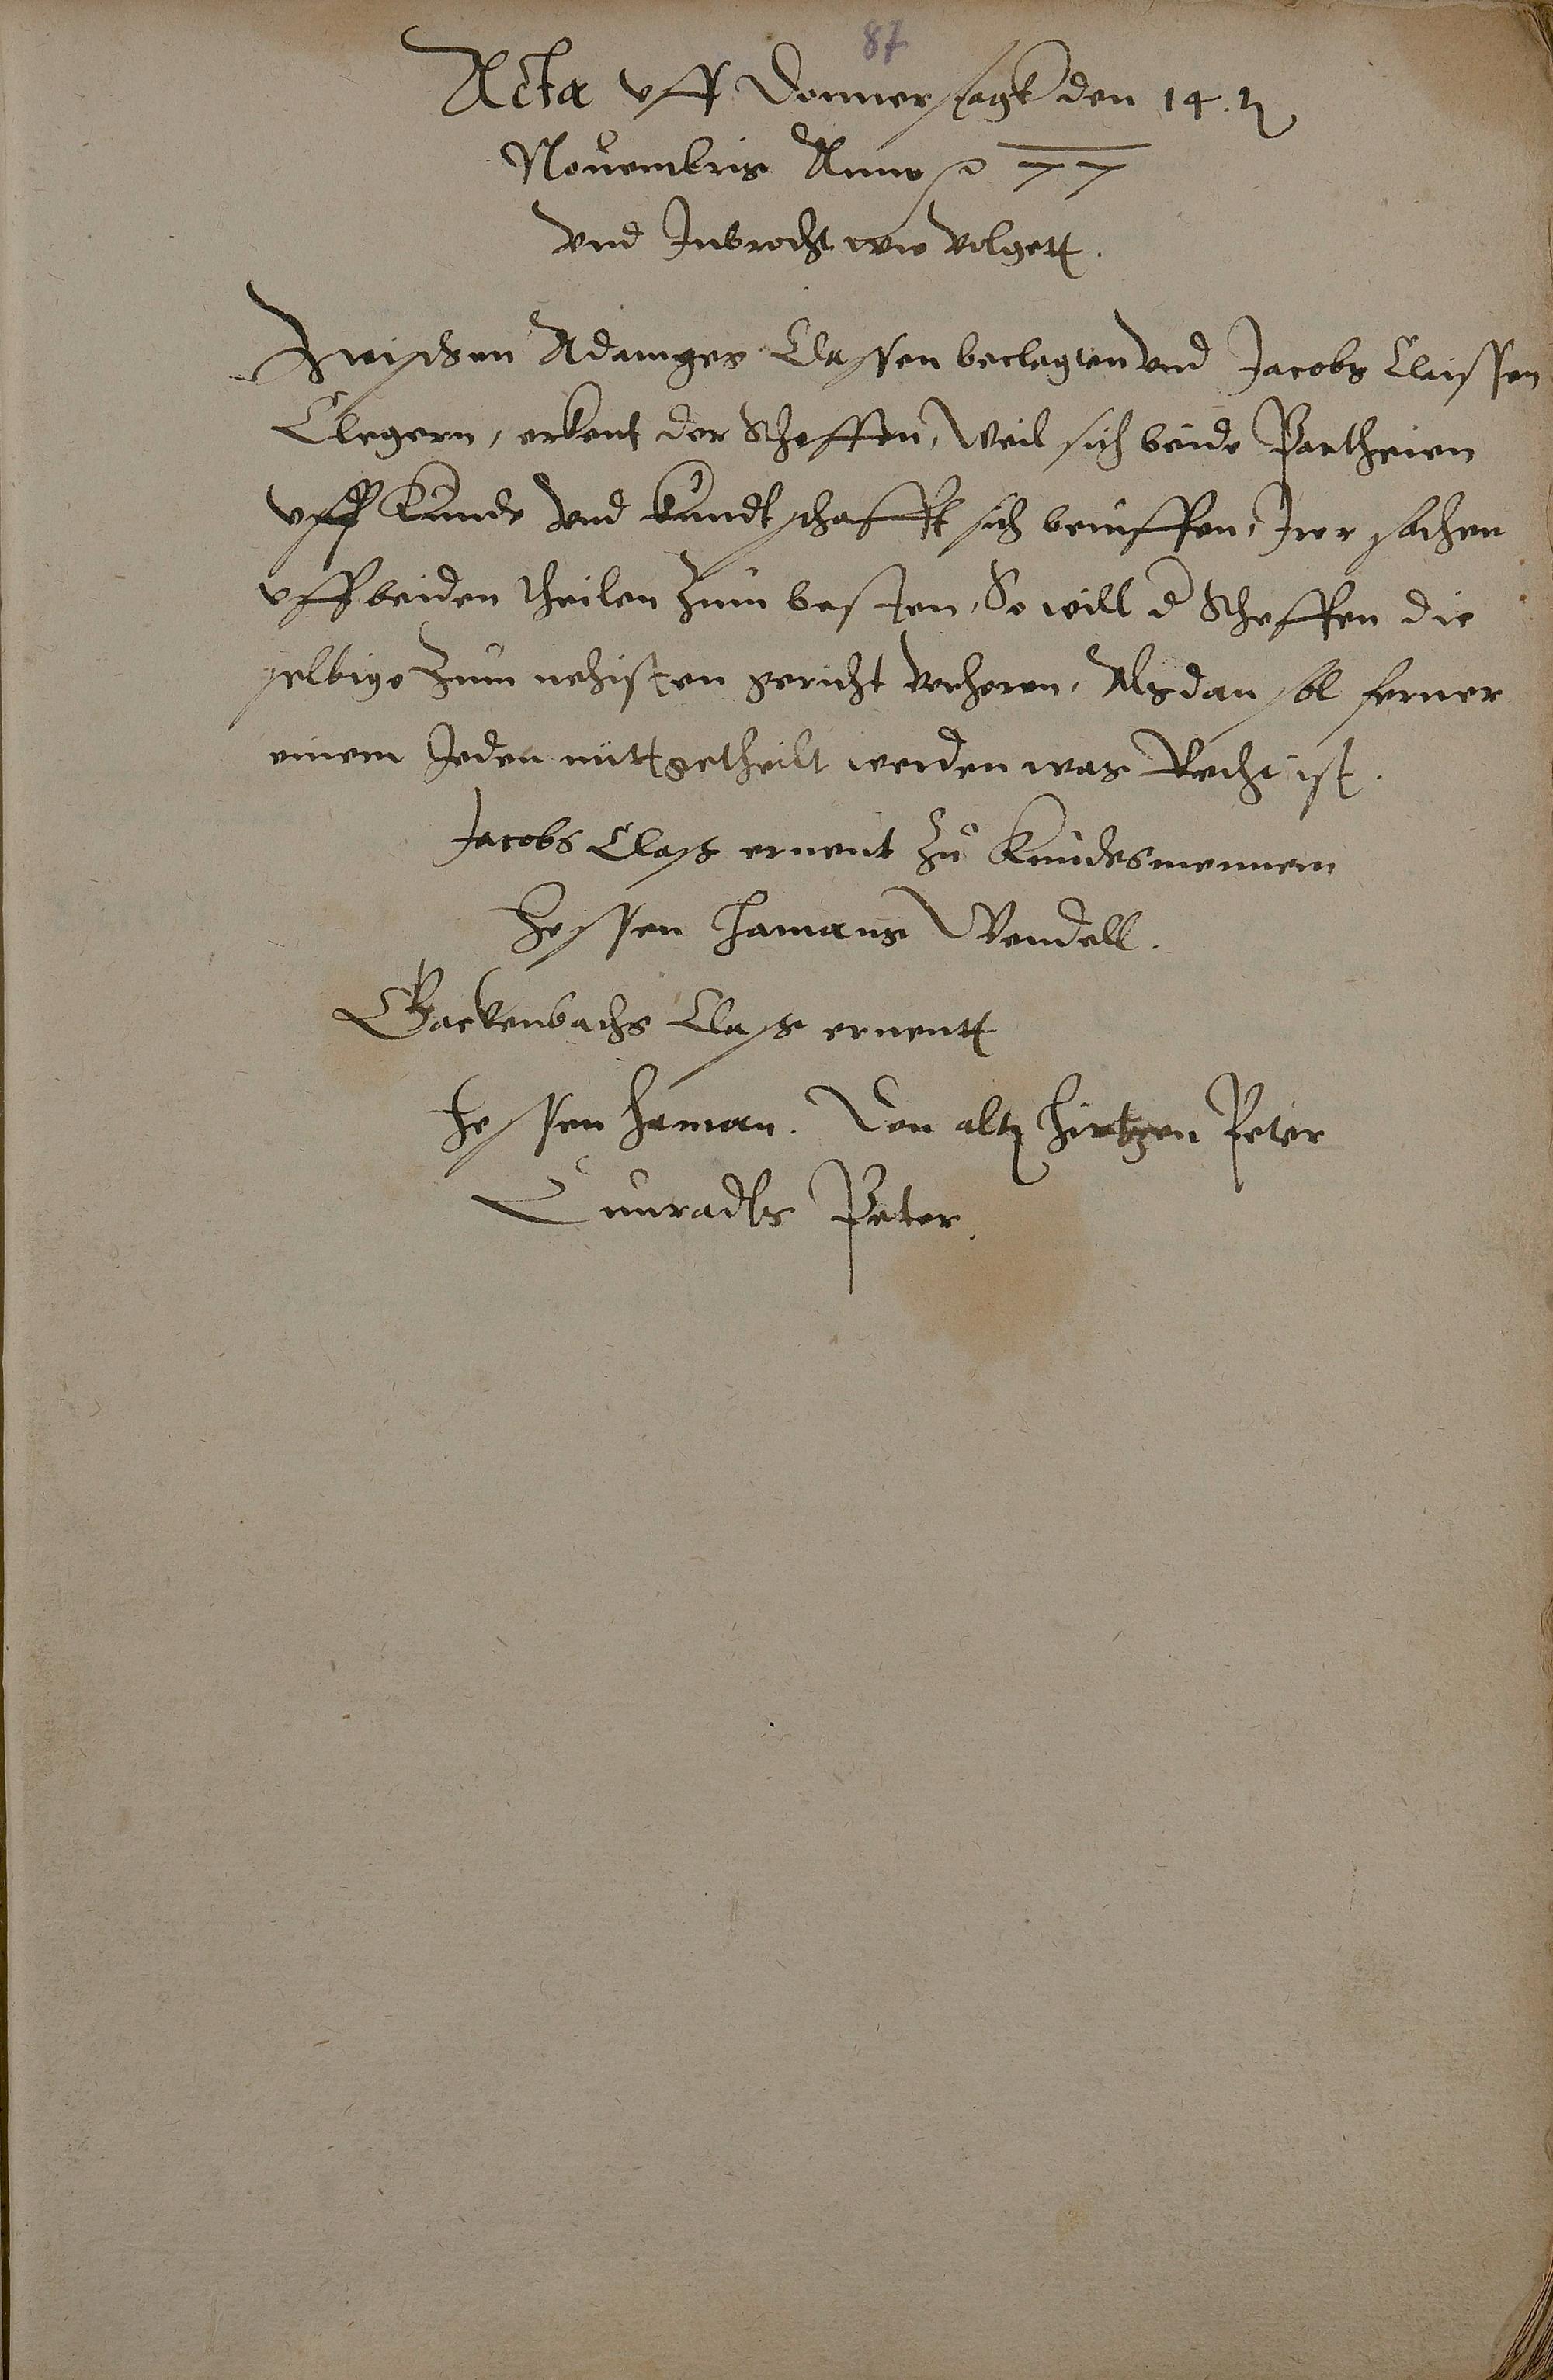 87
Acta vff Donnerstagk den 14.
Nouembris Anno 77
vnd Inbracht wie volgett.
Zwischen Adamges Classen beclagten vnd Jacobs Claissen
Clegern, erkent der Scheffen, Weil sich beide Partheien
vff Kunde vnd kundtschafft sich beruffen, Irer sachen
vff beiden theilen zum besten, So will d Scheffen die
selbige zum nehisten gericht verhoren, Alsdan sol ferner
einem Jeden mittgetheilt werden was Recht ist.
Jacobs Clas ernent zu Kundesmennern
Hessen Hamans Wendell.
Gackenbachs Clas ernentt
Hessen Haman. Den alten Hirtzen Peter
Cunradts Peter.